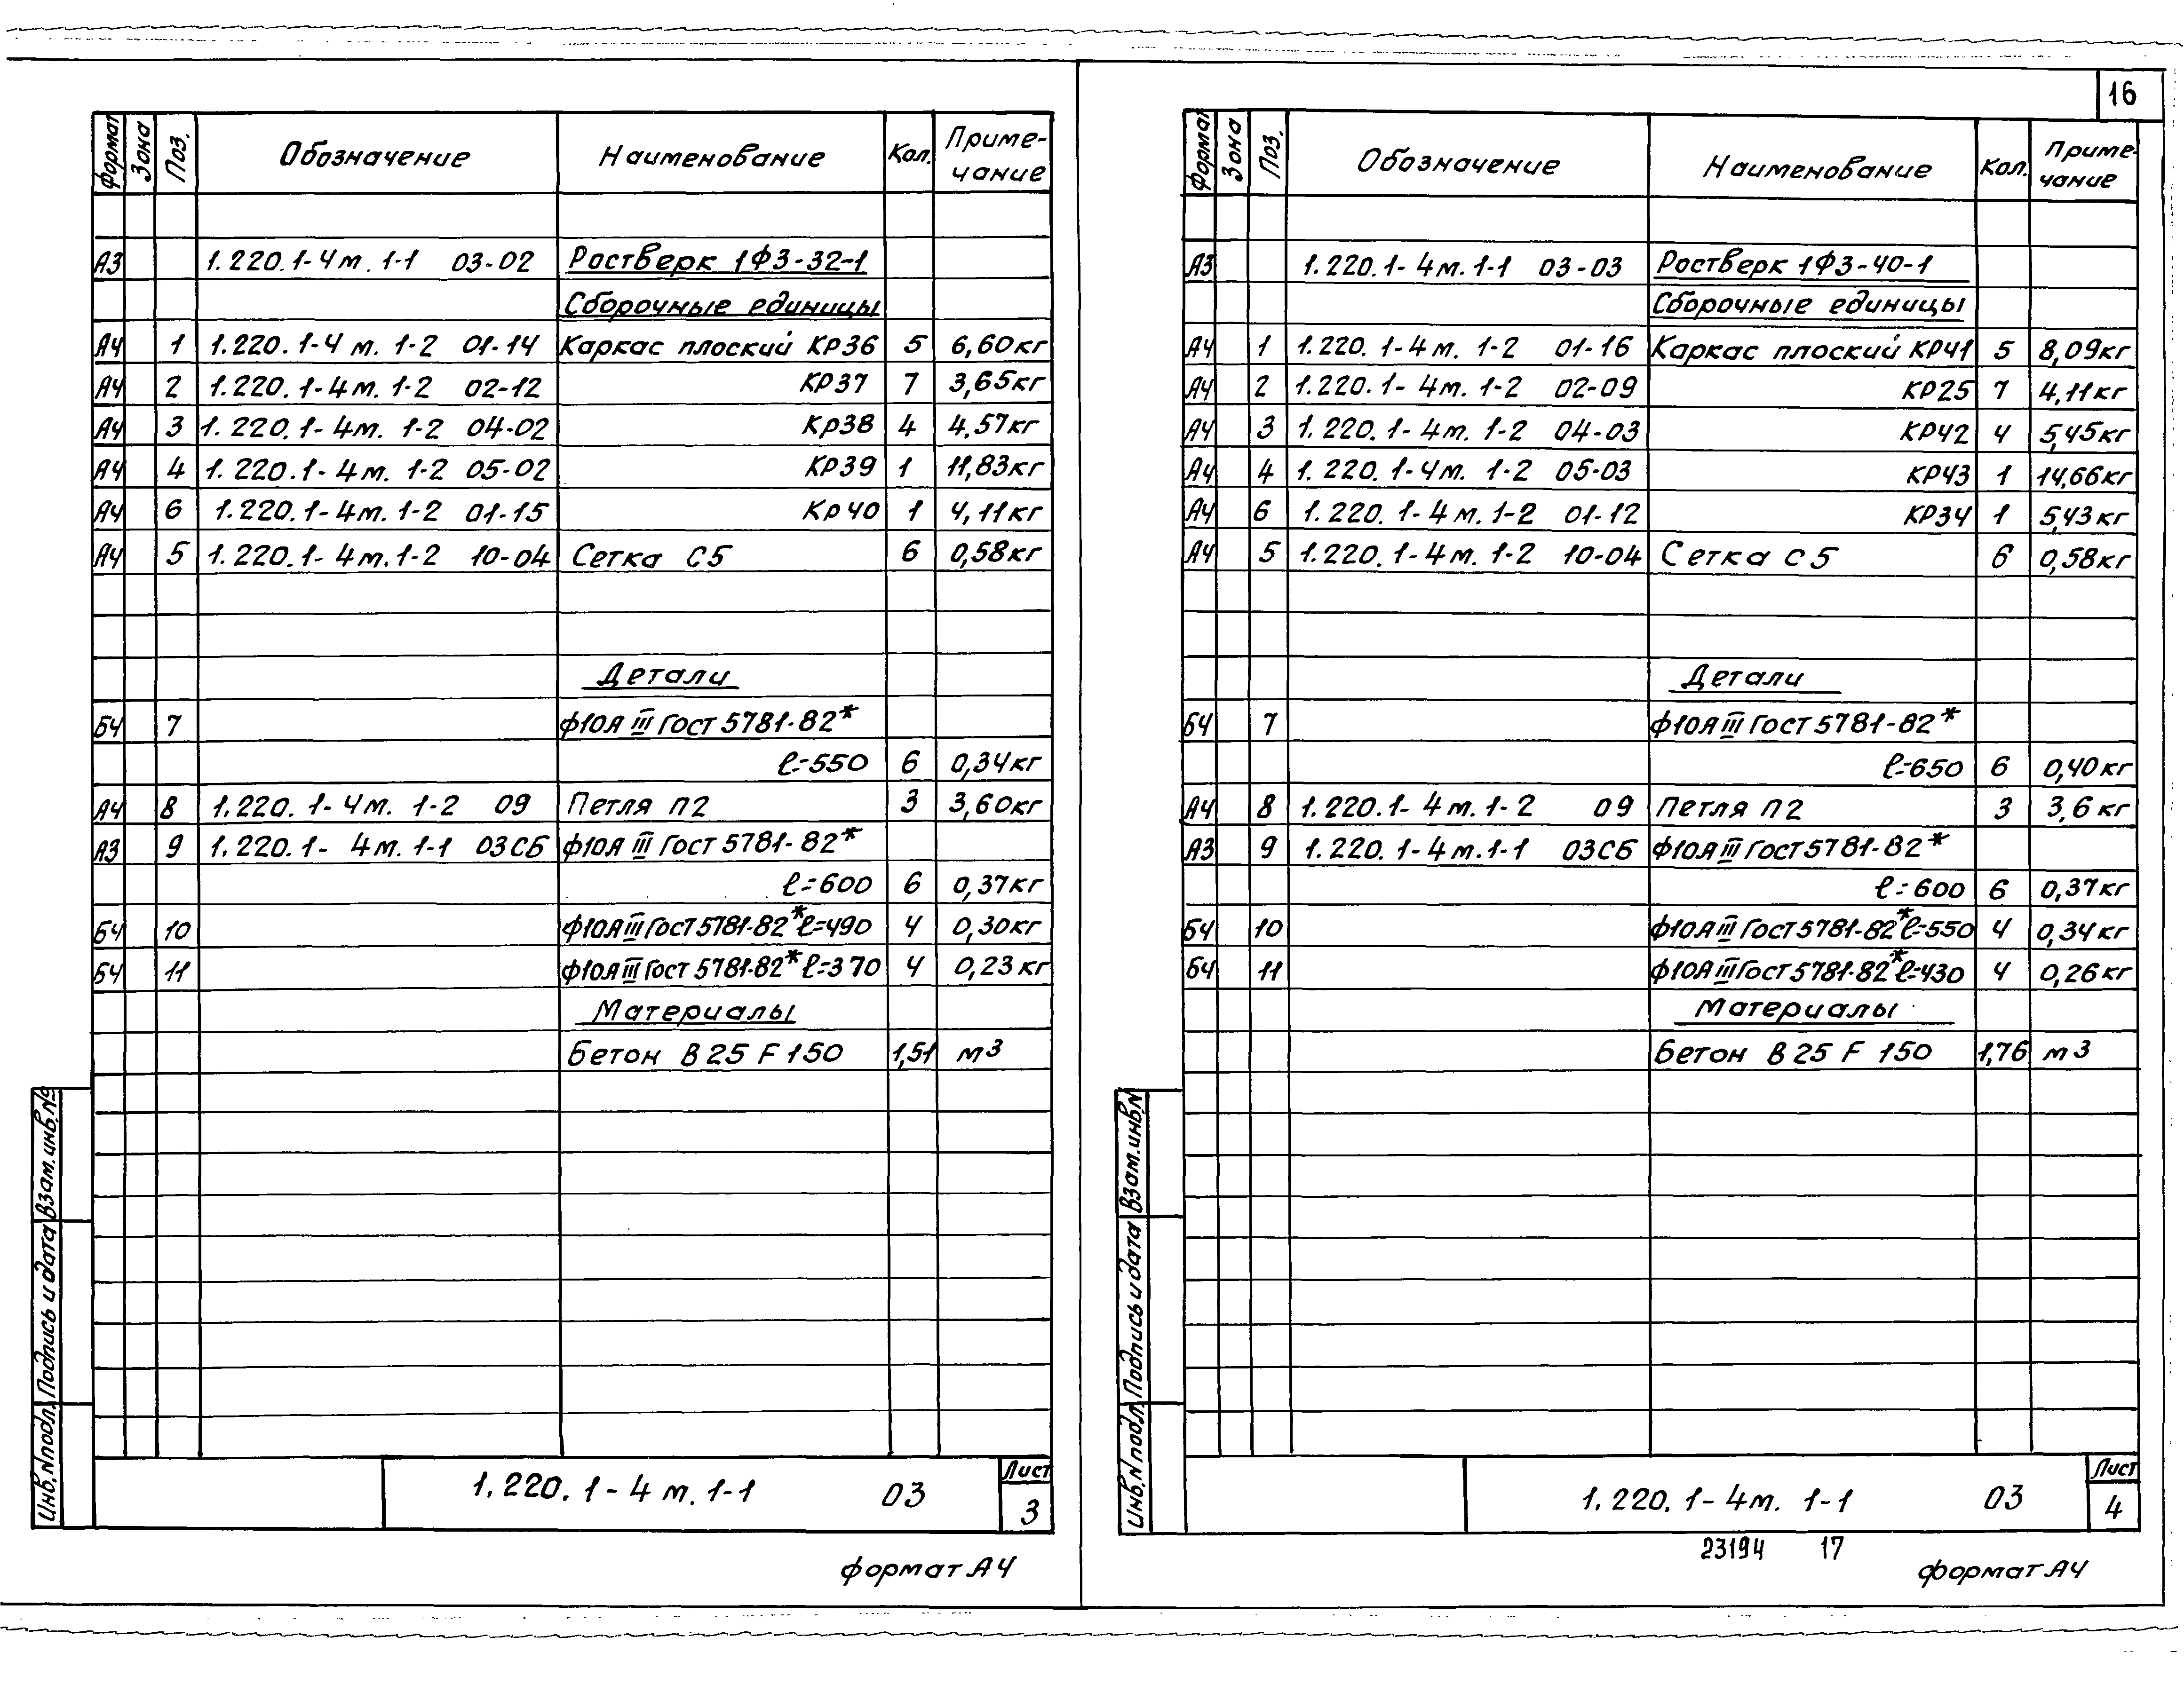 16
Формат Зона Поз. Обозначение Наименование Кол. Приме-
чание
А3 1.220.1-4м.1-1 03-02 Ростверк 1Ф3-32-1
Сборочные единицы
А4 1 1.220.1-4м.1-2 01-14 Каркас плоский КР36 5 6,60кг
А4 2 1.220.1-4м.1-2 02-12 КР37 7 3,65кг
А4 3 1.220.1-4м.1-2 04-02 КР38 4 4,57кг
А4 4 1.220.1-4м.1-2 05-02 КР39 1 11,83кг
А4 6 1.220.1-4м.1-2 01-15 КР40 1 4,11кг
А4 5 1.220.1-4м.1-2 10-04 Сетка С5 6 0,58кг
Детали
БЧ 7 ф10АIII Гост 5781-82*
ℓ=550 6 0,34кг
А4 8 1.220.1-4м.1-2 09 Петля П2 3 3,60кг
А3 9 1.220.1-4м.1-1 03СБ ф10АIII Гост 5781-82*
ℓ=600 6 0,37кг
БЧ 10 ф10АIII Гост 5781-82* ℓ=490 4 0,30кг
БЧ 11 ф10АIII Гост 5781-82* ℓ=370 4 0,23кг
Материалы
Бетон В25 F150 1,51 м3
Инв.№подл. Подпись и дата Взам.инв.№
1.220.1-4м.1-1 03 Лист
3
формат А4
Формат Зона Поз. Обозначение Наименование Кол. Приме-
чание
А3 1.220.1-4м.1-1 03-03 Ростверк 1Ф3-40-1
Сборочные единицы
А4 1 1.220.1-4м.1-2 01-16 Каркас плоский КР41 5 8,09кг
А4 2 1.220.1-4м.1-2 02-09 КР25 7 4,11кг
А4 3 1.220.1-4м.1-2 04-03 КР42 4 5,45кг
А4 4 1.220.1-4м.1-2 05-03 КР43 1 14,66кг
А4 6 1.220.1-4м.1-2 01-12 КР34 1 5,43кг
А4 5 1.220.1-4м.1-2 10-04 Сетка С5 6 0,58кг
Детали
БЧ 7 ф10АIII Гост 5781-82*
ℓ=650 6 0,40кг
А4 8 1.220.1-4м.1-2 09 Петля П2 3 3,6кг
А3 9 1.220.1-4м.1-1 03СБ ф10АIII Гост 5781-82*
ℓ=600 6 0,37кг
БЧ 10 ф10АIII Гост 5781-82* ℓ=550 4 0,34кг
БЧ 11 ф10АIII Гост 5781-82* ℓ=430 4 0,26кг
Материалы
Бетон В25 F150 1,76 м3
Инв.№подл. Подпись и дата Взам.инв.№
1.220.1-4м.1-1 03 Лист
4
23194 17
формат А4